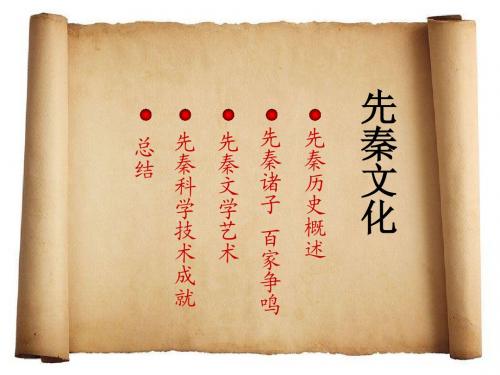 先秦文化
先秦历史概述
先秦诸子 百家争鸣
先秦文学艺术
先秦科学技术成就
总结